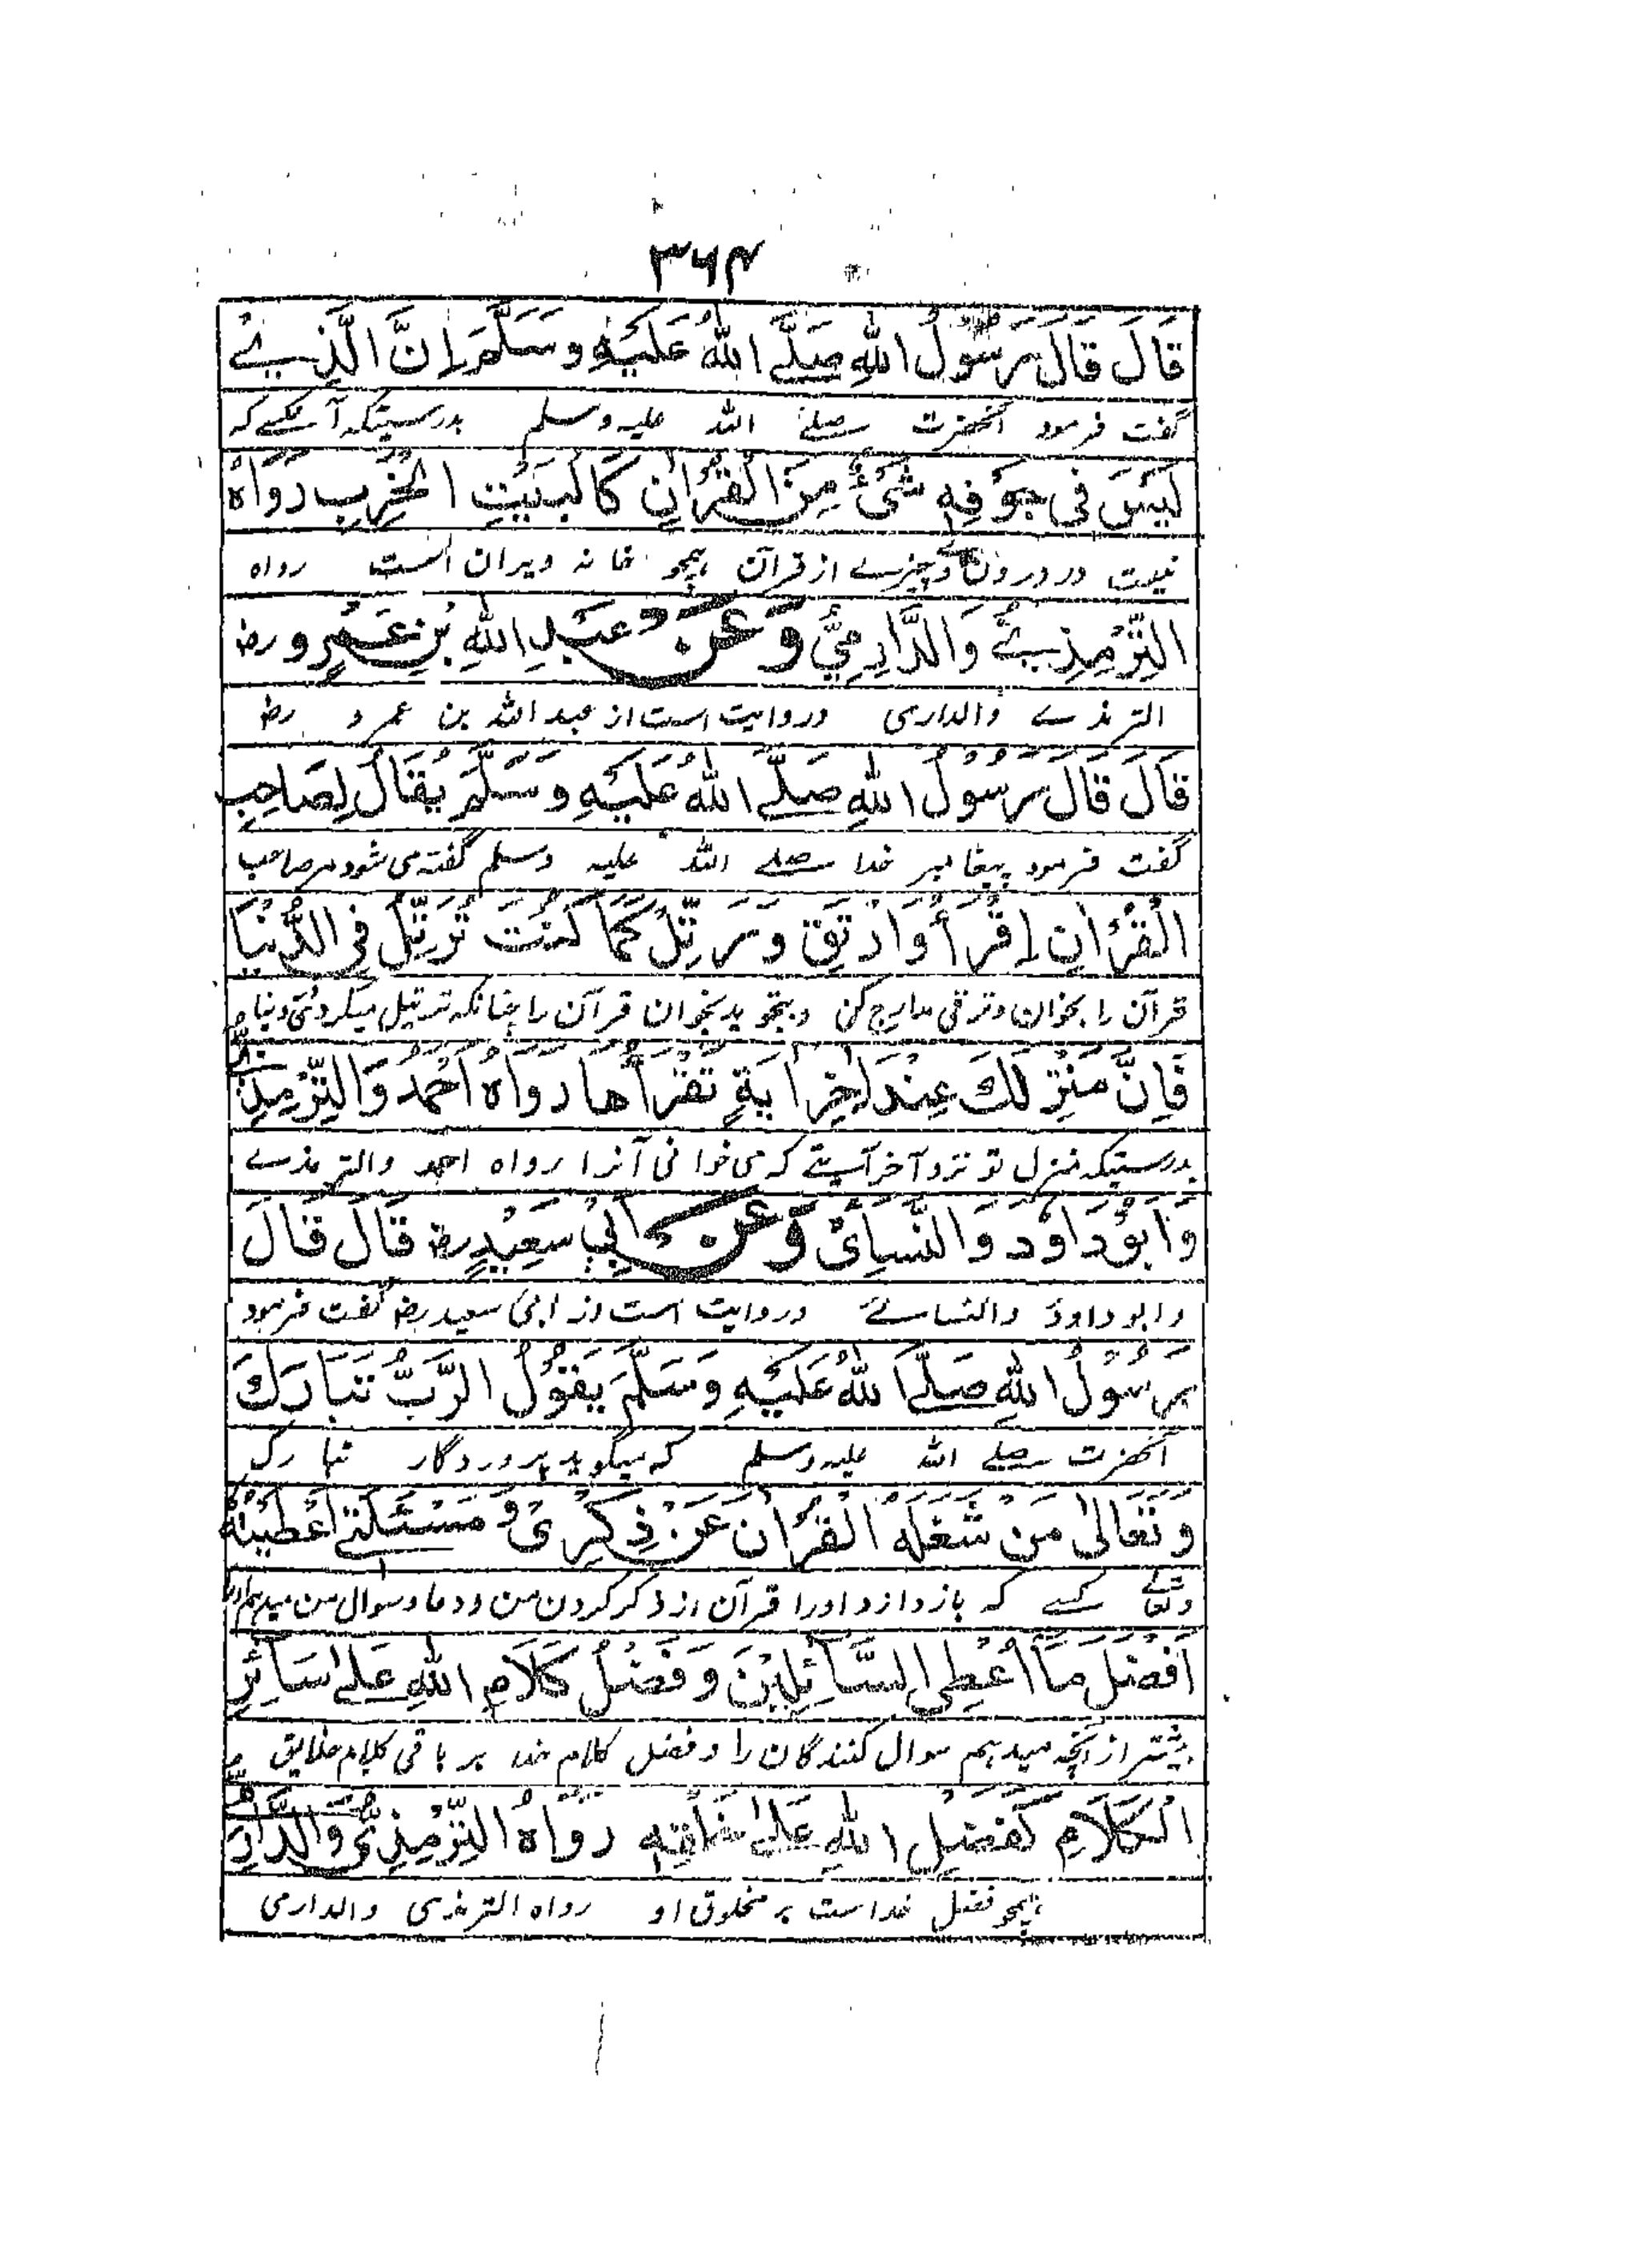 ۳۶۴
قَالَ قَالَ رَسُوْلُ اللهِ صَلَّے اللهُ عَلَيْهِ وَسَلَّمَ اِنَّ الَّذِيْ
گفت فرمود آنحضرت صلے الله علیه وسلم بدرستیکه آنکسے که
لَيْسَ فِي جَوْفِهٖ شَیْءٌ مِنَ الْقُرْاٰنِ كَالْبَيْتِ الْخَرِبِ رَوَاهُ
نیست در درون او چیزے از قرآن ہمچو خانه ویران است رواه
التِّرْمِذِيُّ وَالدَّارِمِيُّ وَعَنْ عَبْدِ اللهِ بْنِ عَمْرٍو رض
الترمذے والدارمی وروایت است از عبد الله بن عمرو رض
قَالَ قَالَ رَسُوْلُ اللهِ صَلَّے اللهُ عَلَيْهِ وَسَلَّمَ يُقَالُ لِصَاحِبِ
گفت فرمود پیغامبر خدا صلے الله علیه وسلم گفته می شود مر صاحب
الْقُرْاٰنِ اِقْرَأْ وَارْتَقِ وَرَتِّلْ كَمَا كُنْتَ تُرَتِّلُ فِي الدُّنْيَا
قرآن را بخوان وترقی مدارج کن وبتجوید بخوان قرآن را چنانکه ترتیل میکردی دنیا
فَاِنَّ مَنْزِلَكَ عِنْدَ اٰخِرِ اٰيَةٍ تَقْرَأُهَا رَوَاهُ اَحْمَدُ وَالتِّرْمِذِيُّ
بدرستیکه منزل تو نزد آخر آیتے که می خوانی آنرا رواه احمد والترمذے
وَاَبُوْدَاوٗدَ وَالنَّسَائِیُّ وَعَنْ اَبِيْ سَعِيْدٍ رض قَالَ قَالَ
وابو داوٗد والنسائے وروایت است از ابی سعید رض گفت فرمود
رَسُوْلُ اللهِ صَلَّے اللهُ عَلَيْهِ وَسَلَّمَ يَقُوْلُ الرَّبُّ تَبَارَكَ
آنحضرت صلے الله علیه وسلم که میگوید پروردگار تبارک
وَتَعَالٰى مَنْ شَغَلَهُ الْقُرْاٰنُ عَنْ ذِكْرِیْ وَمَسْئَلَتِیْ اَعْطَيْتُهُ
وتعالے کسے که باز دازد اورا قرآن از ذکر کردن من ودعا وسوال من میدهم اورا
اَفْضَلَ مَا اُعْطِي السَّائِلِيْنَ وَفَضْلُ كَلَامِ اللهِ عَلٰے سَائِرِ
بیشتر از آنچه میدهم سوال کنندگان را وفضل کلام خدا بر باقی کلام خلایق
الْكَلَامِ كَفَضْلِ اللهِ عَلٰى خَلْقِهٖ رَوَاهُ التِّرْمِذِيُّ وَالدَّارِمِيُّ
ہمچو فضل خداست بر مخلوق او رواه الترمذی والدارمی